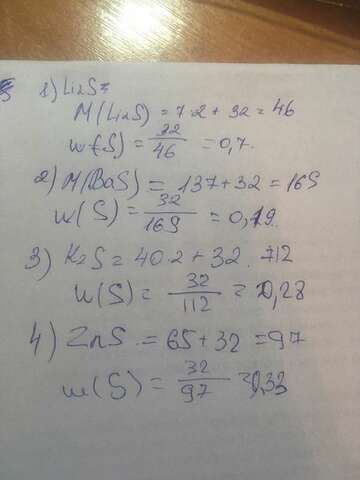 1) Li2S=
M(Li2S) = 7·2 + 32 = 46
w(S) = 32/46 = 0,7.
2) M(BaS) = 137+32 = 169
w(S) = 32/169 = 0,19.
3) K2S = 40·2 + 32 = 112
w(S) = 32/112 = 0,28
4) ZnS = 65 + 32 = 97
w(S) = 32/97 = 0,33